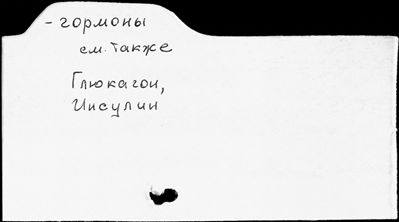 - гормоны
см. также
Глюкагон,
Инсулин